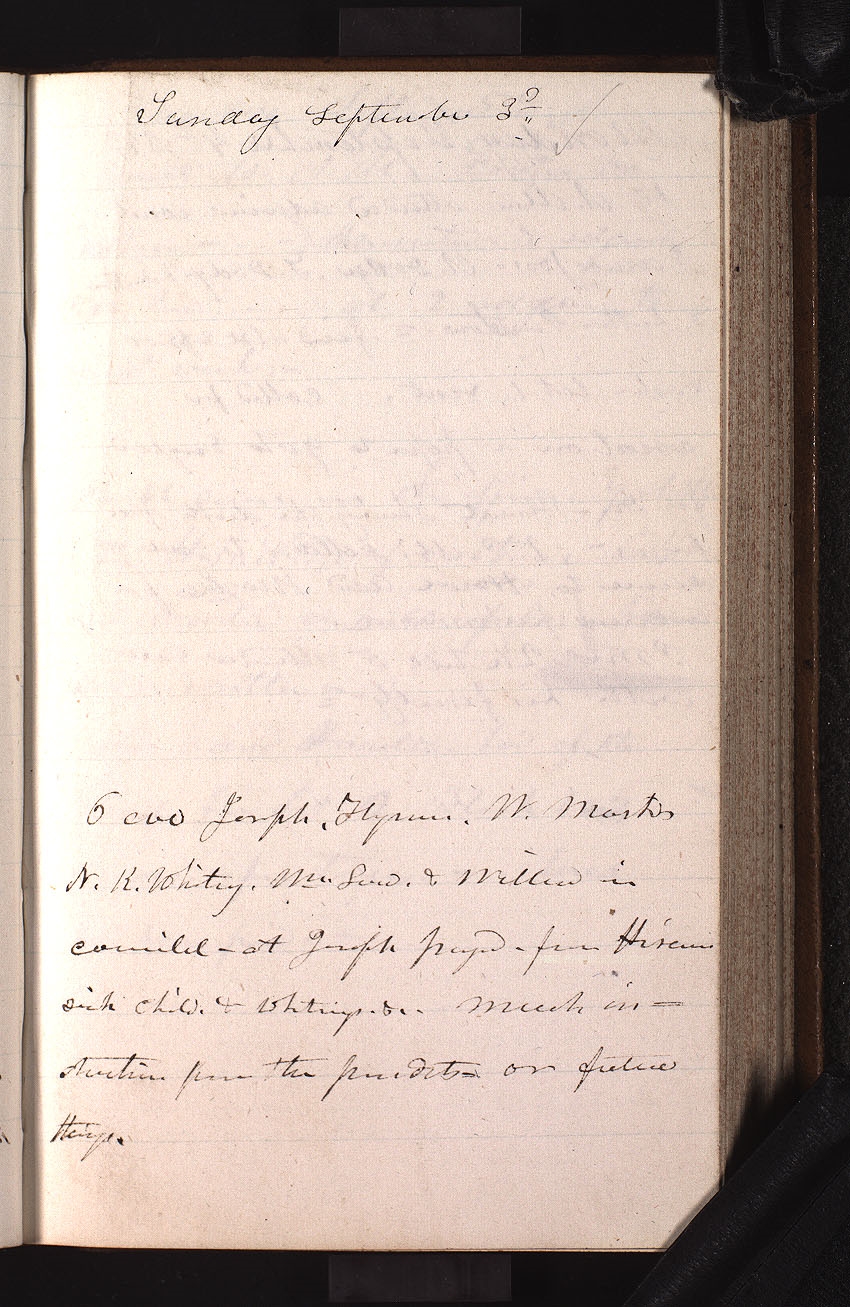 Sunday September 3d
6 eve Joseph. Hyrum. W. Marks
N. K. Whitney. Mr Law. & Willard in
council - at Joseph prayd - for Hirams
sick child. & Whitneys. &c. much in=
struction from the presdt= on future
things.